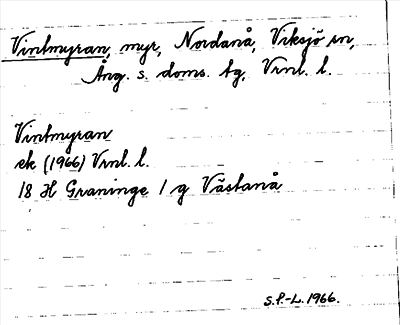 Vintmyran, myr, Nordanå, Viksjö sn,
Ång. s. doms. tg, Vrnl. l.
Vintmyran
ek (1966) Vrnl. l.
18 H Graninge 1 g Västanå
S.P.-L. 1966.